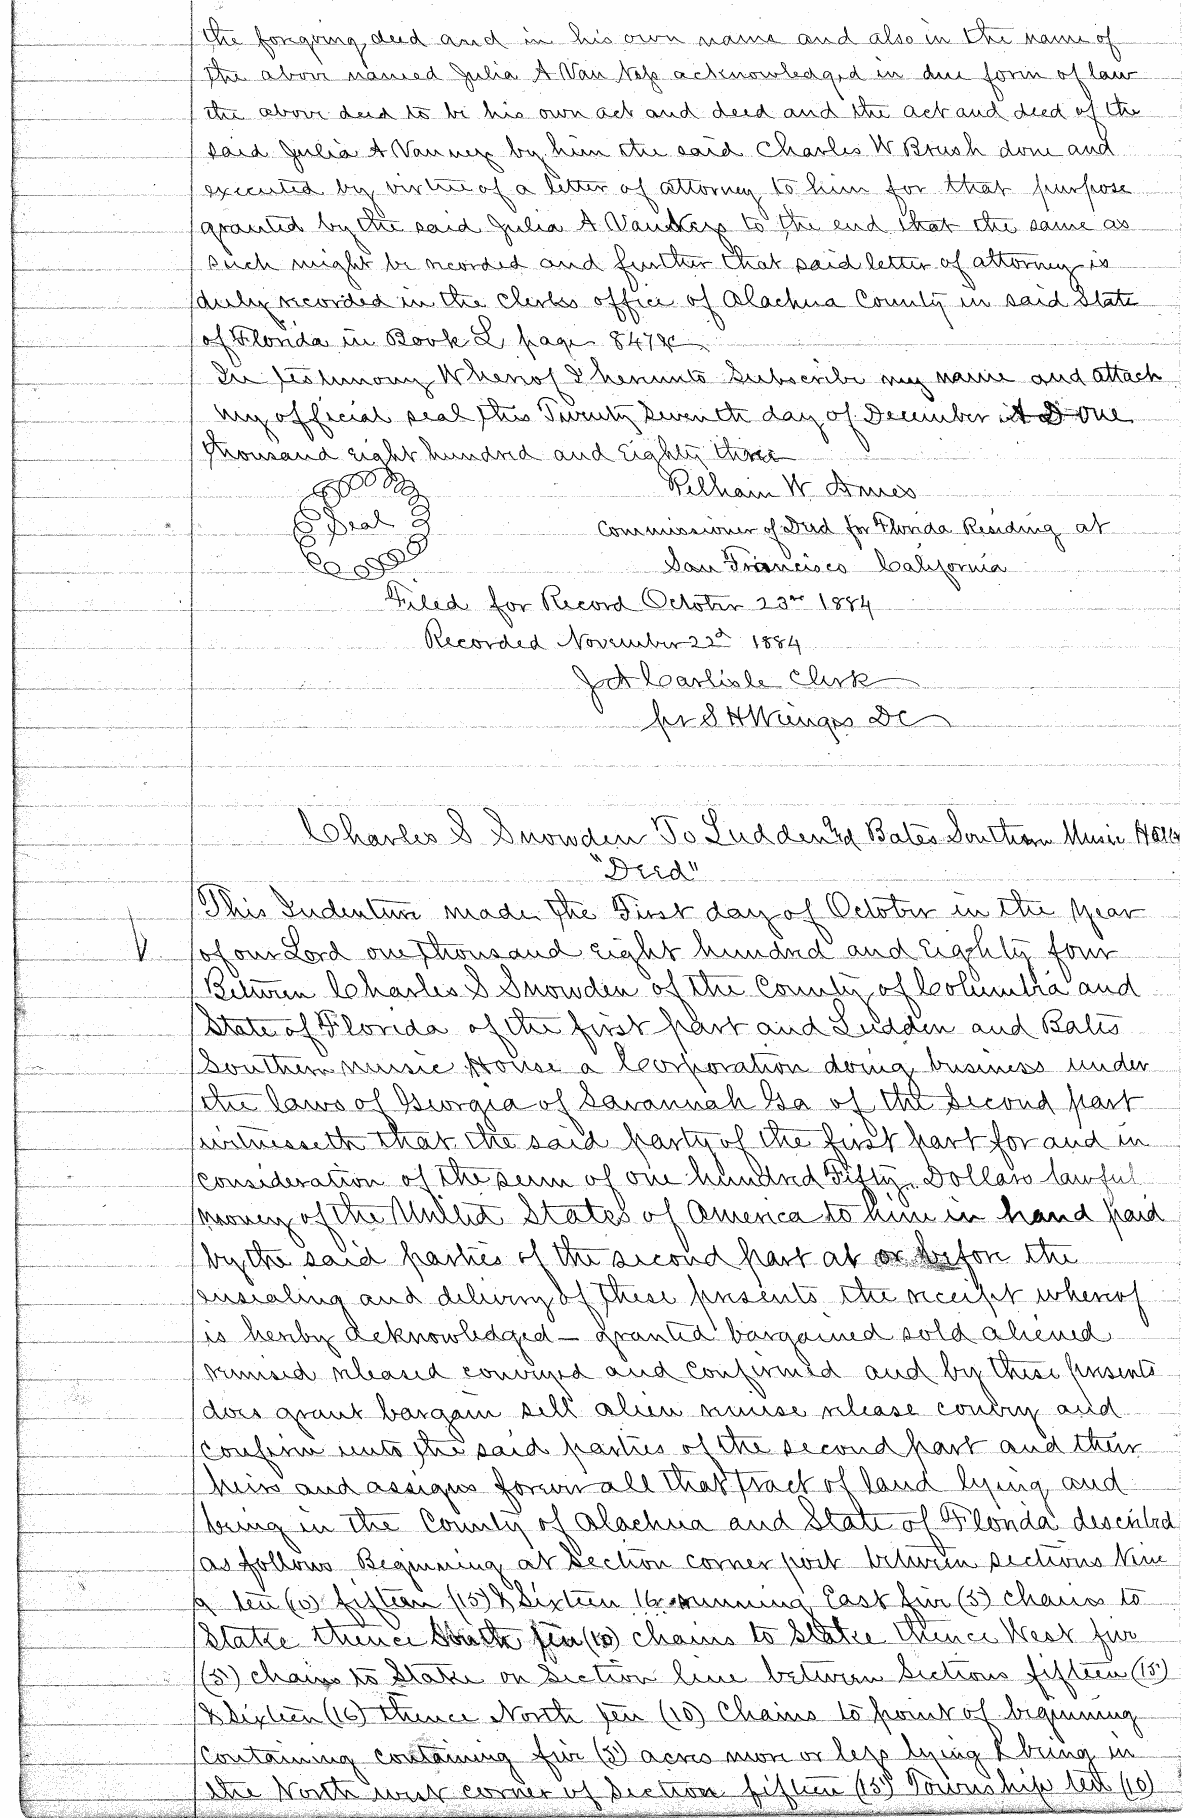 the foregoing deed and in his own name and also in the name of
the above named Julia A Van Ness acknowledged in due form of law
the above deed to be his own act and deed and the act and deed of the
said Julia A Vanness by him the said Charles W Brush done and
executed by virtue of a letter of attorney to him for that purpose
granted by the said Julia A VanNess to the end that the same as
such might be recorded and further that said letter of attorney is
duly recorded in the Clerks office of Alachua County in said State
of Florida in Book L page 847 &c
In testimony Whereof I hereunto Subscribe my name and attach
my official seal this Twenty Seventh day of December A D One
thousand eight hundred and Eighty three
Seal
Pelham W Ames
Commissioner of Deed for Florida Residing at
San Francisco California
Filed for Record October 23rd 1884
Recorded November 22d 1884
J A Carlisle Clerk
pr S H Wienges DC
Charles S Snowden To Ludden and Bates Southern Music House
"Deed"
This Indenture made the First day of October in the year
of our Lord one thousand eight hundred and Eighty four
Between Charles S Snowden of the County of Columbia and
State of Florida of the first part and Ludden and Bates
Southern music House a Corporation doing business under
the laws of Georgia of Savannah Ga of the second part
witnesseth that the said party of the first part for and in
consideration of the sum of one hundred Fifty Dollars lawful
money of the United States of America to him in hand paid
by the said parties of the second part at or before the
ensealing and delivery of these presents the receipt whereof
is hereby acknowledged – granted bargained sold aliened
remised released conveyed and confirmed and by these presents
does grant bargain sell alien remise release convey and
confirm unto the said parties of the second part and their
heirs and assigns forever all that tract of land lying and
being in the County of Alachua and State of Florida described
as follows Beginning at Section corner post between sections Nine
9 ten (10) fifteen (15) & Sixteen 16 running East five (5) chains to
Stake thence South ten (10) chains to Stake thence West five
(5) chains to Stake on Section line between Sections fifteen (15)
& Sixteen (16) thence North ten (10) Chains to point of beginning
Containing containing five (5) acres more or less lying & being in
the North west corner of Section fifteen (15) Township ten (10)